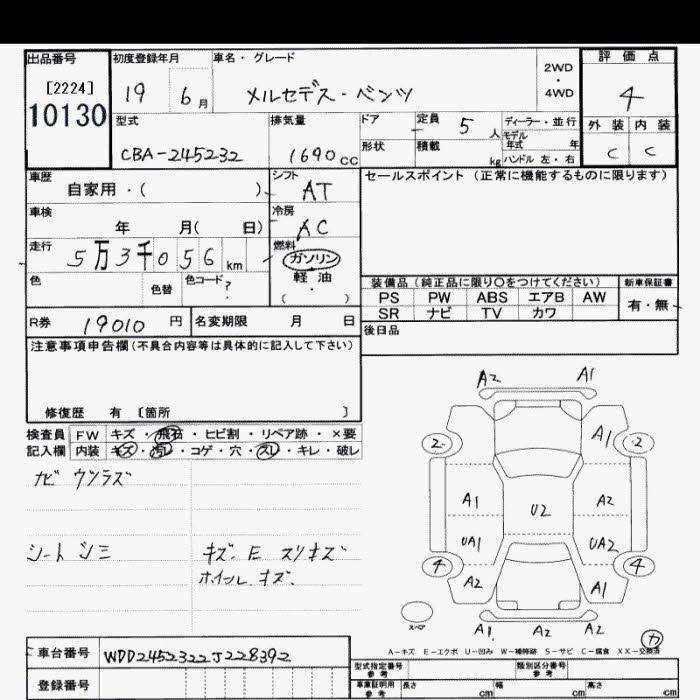 出品番号 初度登録年月 車名・グレード 評価点
[2224] 19 6月 メルセデス・ベンツ 2WD・4WD 4
10130
型式 排気量 ドア 定員 5人 ディーラー・並行 外装 内装
モデル年式 年
CBA-245232 1690cc 形状 積載 kg ハンドル 左・右 C C
車歴 シフト セールスポイント(正常に機能するものに限ります)
自家用・( ) AT
車検 冷房
年 月( 日) AC
走行 燃料
5万3千056km ガソリン
色 色替 色コード ? 軽油
・
( )
装備品(純正品に限り〇をつけてください) 新車保証書
PS PW ABS エアB AW 有・無
SR ナビ TV カワ
R券 19010円 名変期限 月 日 後日品
注意事項申告欄(不具合内容等は具体的に記入して下さい)
修復歴 有 〔箇所 〕
検査員 FW キズ・飛石・ヒビ割・リペア跡・×要
記入欄 内装 キズ・汚レ・コゲ・穴・スレ・キレ・破レ
ナビ ウツラズ
シート シミ キズ.E スリキズ
ホイルキズ.
A2 A1
2 A1 2
A1 U2 A2
UA1 UA2
4 A2 A1 4
スペア A1 A2 A2 カ
A-キズ E-エクボ U-凹み W-補修跡 S-サビ C-腐食 XX-交換済
車台番号 WDD2452322J228392
登録番号
型式指定番号 参考 類別区分番号 参考
車庫証明用 参考 長さ cm 幅 cm 高さ cm